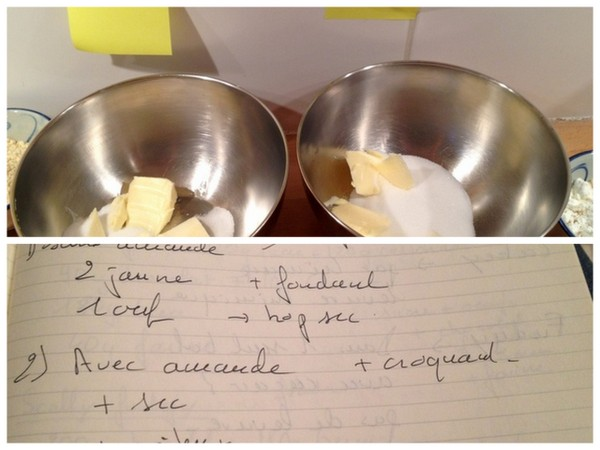 1) sans amande
2 jaune + fondant
1 œuf → trop sec
2) Avec amande + croquant -
+ sec